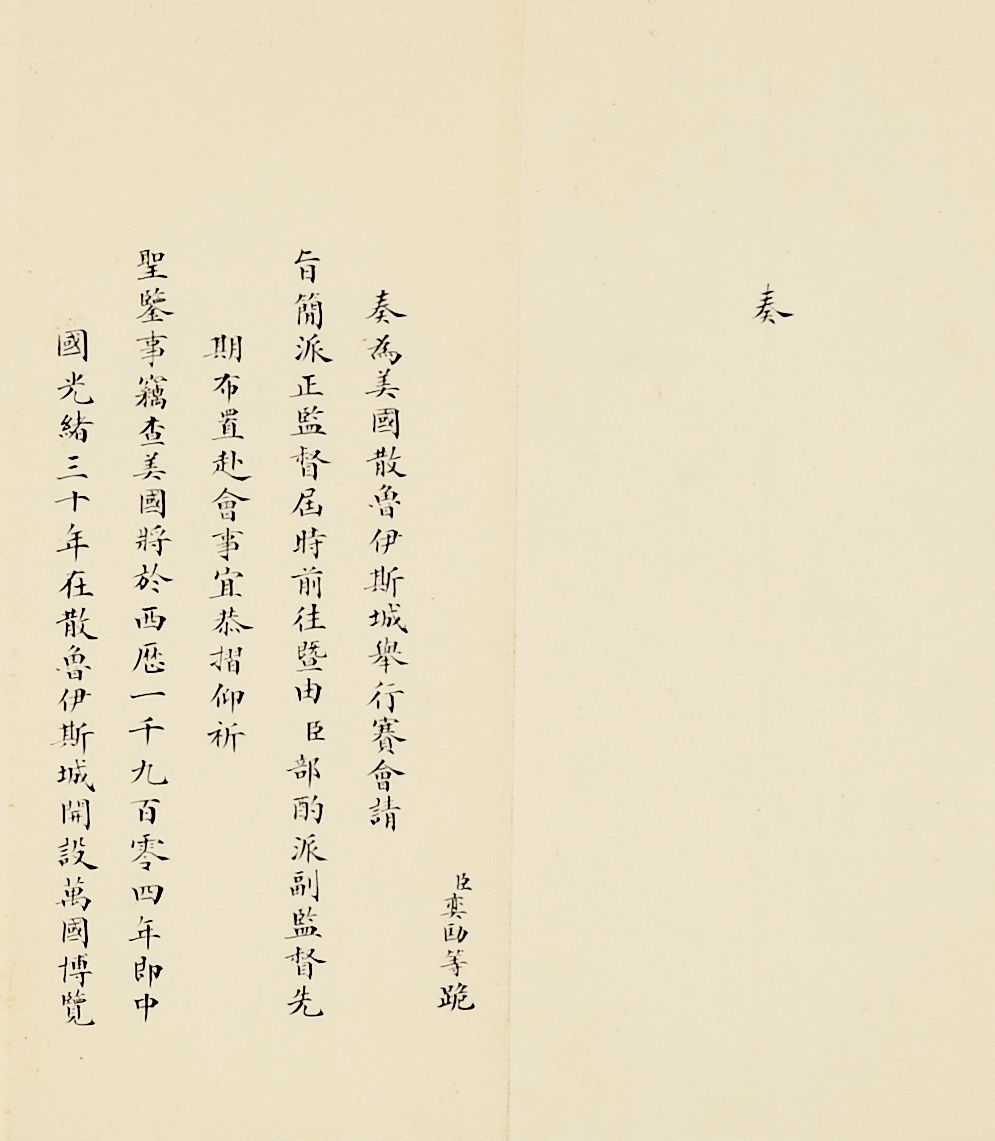 奏
臣奕劻等跪
奏為美國散魯伊斯城舉行賽會請
旨簡派正監督屆時前往暨由臣部酌派副監督先
期布置赴會事宜恭摺仰祈
聖鑒事竊查美國將於西歷一千九百零四年即中
國光緒三十年在散魯伊斯城開設萬國博覽